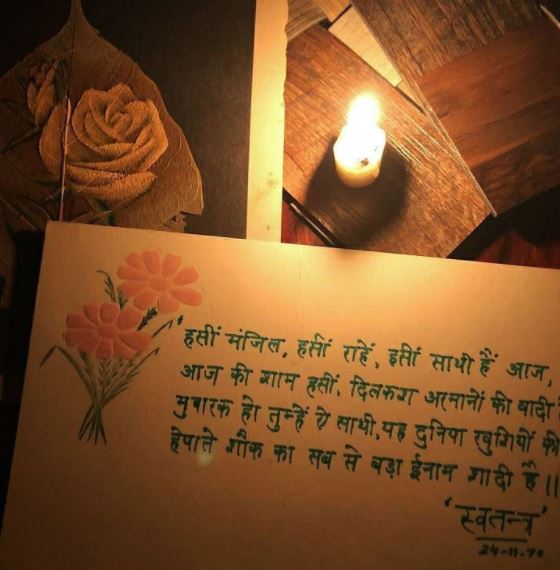 'हसीं मंजिल, हसीं राहें, हसीं साथी हैं आज,
आज की शाम हसीं, दिलकश अरमानों की वादी
मुबारक हो तुम्हें ऐ साथी, यह दुनिया खुशियों की
हयाते शौक का सब से बड़ा ईनाम शादी है।।
'स्वतन्त्र'
24-11-70